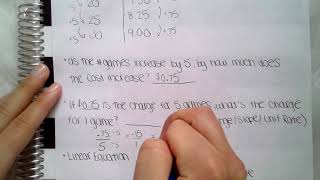 +5 20 7.50 .75
+5 25 8.25 +.75
+5 9.00 +.75
• As the # games increase by 5, by how much does
the cost increase? $0.75
• If $0.75 is the charge for 5 games, what's the charge
for 1 game? (Slope/Unit Rate)
.75 ÷5 = .15
5 ÷5 1
• Linear Equation